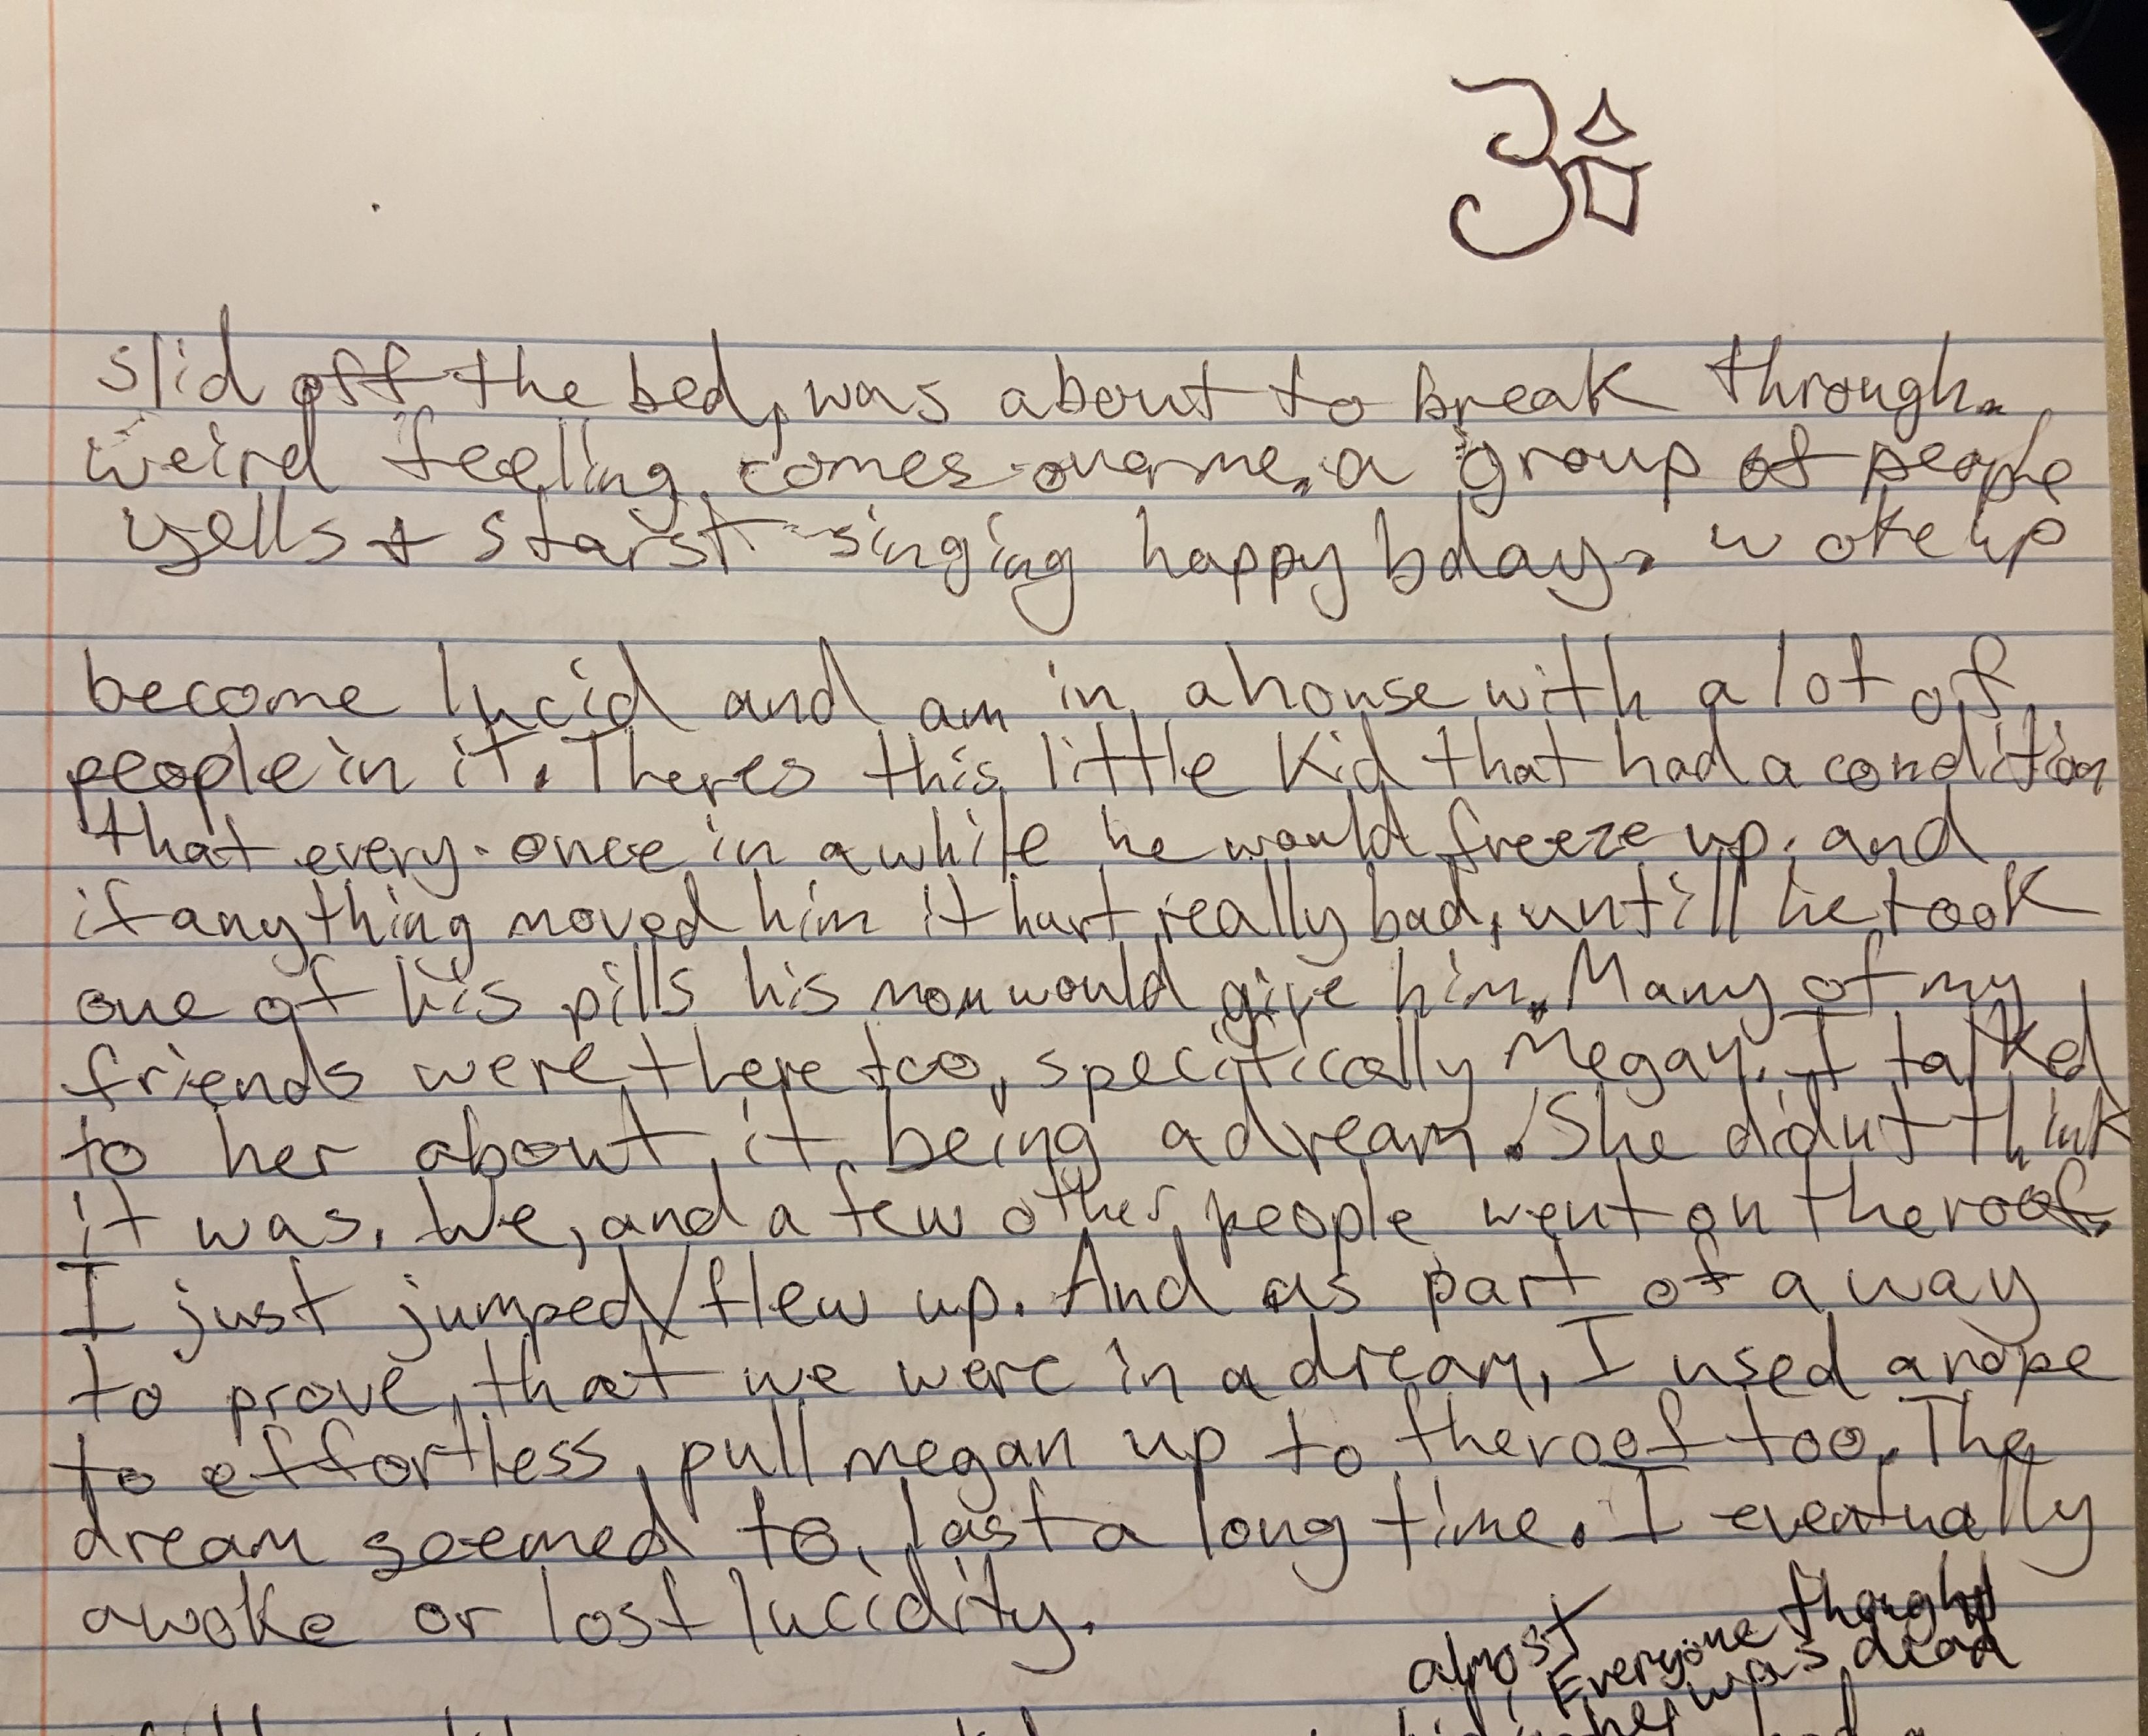 slid off the bed, was about to break through.
weird feeling comes over me, a group of people
yells + starst singing happy bday. woke up
become lucid and am in a house with a lot of
people in it. Theres this little kid that had a condition
that every once in a while he would freeze up, and
if anything moved him it hurt really bad, untill he took
one of his pills his mom would give him. Many of my
friends were there too, specifically Megan. I talked
to her about it being a dream. She didnt think
it was. We, and a few other people went on the roof.
I just jumped/flew up. And as part of a way
to prove that we were in a dream, I used a rope
to effortless pull megan up to the roof too. The
dream seemed to last a long time. I eventually
awoke or lost lucidity.
almost Everyone thought
was dead